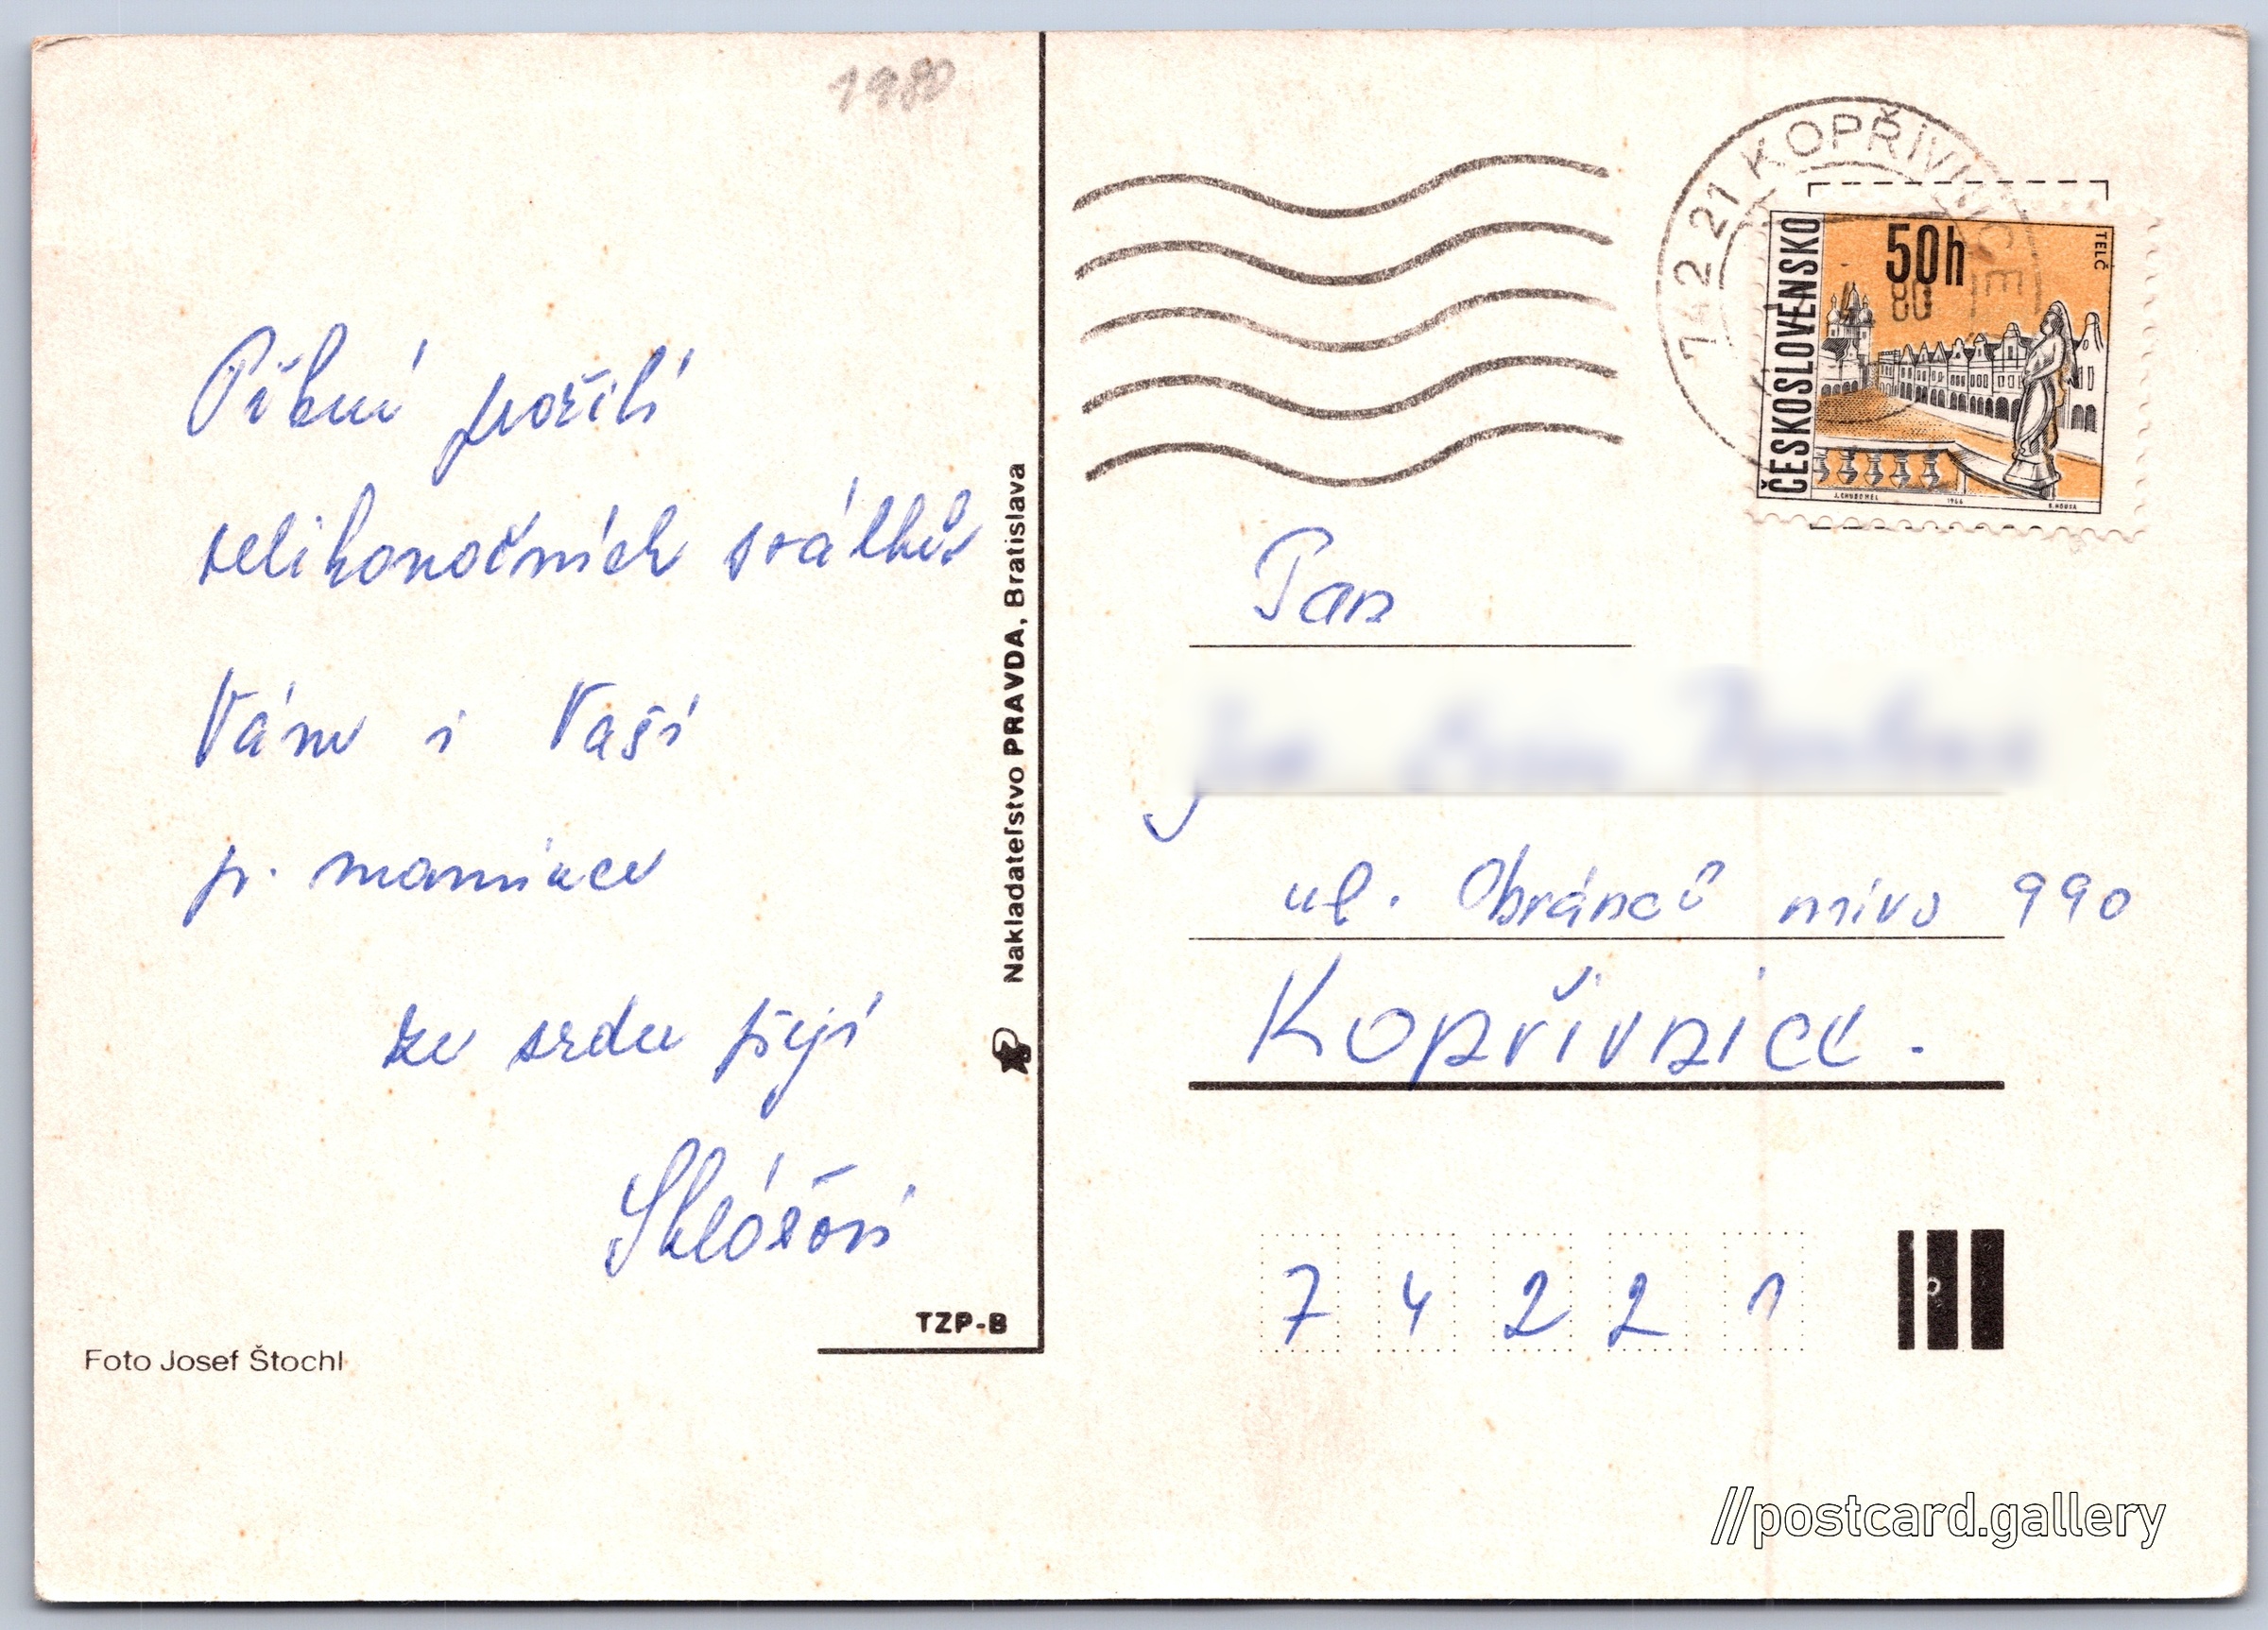 1980
Pěkné prožití
velikonočních svátků
Vám i Vaší
p. mamince
ze srdce přejí
Nakladateľstvo PRAVDA, Bratislava
TZP-B
Foto Josef Štochl
742 21 KOPŘIVNICE
80
ČESKOSLOVENSKO
50h
TELČ
1966
Pan
ul. Obránců míru 990
Kopřivnice.
7 4 2 2 1
//postcard.gallery